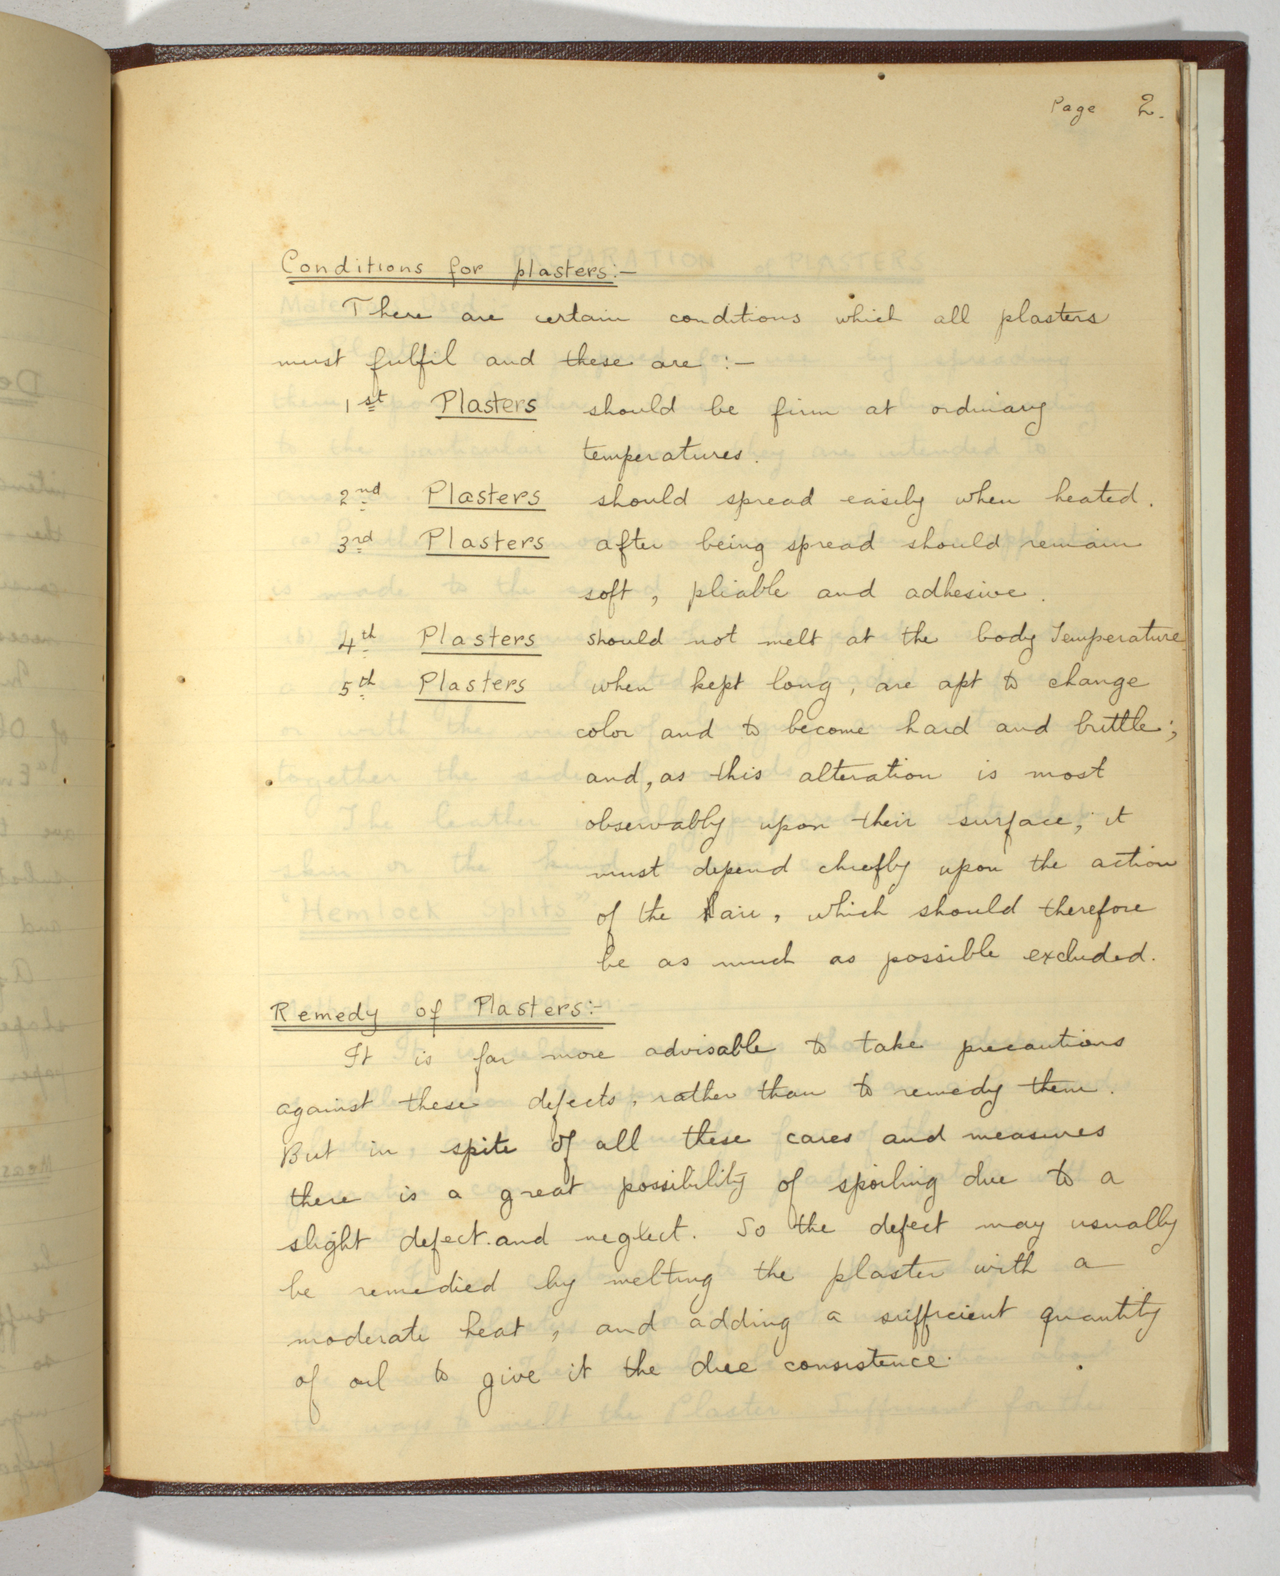 Page 2.
Conditions for plasters:-
There are certain conditions which all plasters
must fulfil and these are :-
1st Plasters should be firm at ordinary
temperatures.
2nd Plasters should spread easily when heated.
3rd Plasters after being spread should remain
soft, pliable and adhesive.
4th Plasters should not melt at the body Temperature
5th Plasters when kept long, are apt to change
color and to become hard and brittle;
and, as this alteration is most
observably upon their surface, it
must depend chiefly upon the action
of the air, which should therefore
be as much as possible excluded.
Remedy of Plasters:-
It is far more advisable to take precautions
against these defects, rather than to remedy them.
But in, spite of all these cares and measures
there is a great possibility of spoiling due to a
slight defect and neglect. So the defect may usually
be remedied by melting the plaster with a
moderate heat, and adding a sufficient quantity
of oil to give it the due consistence.